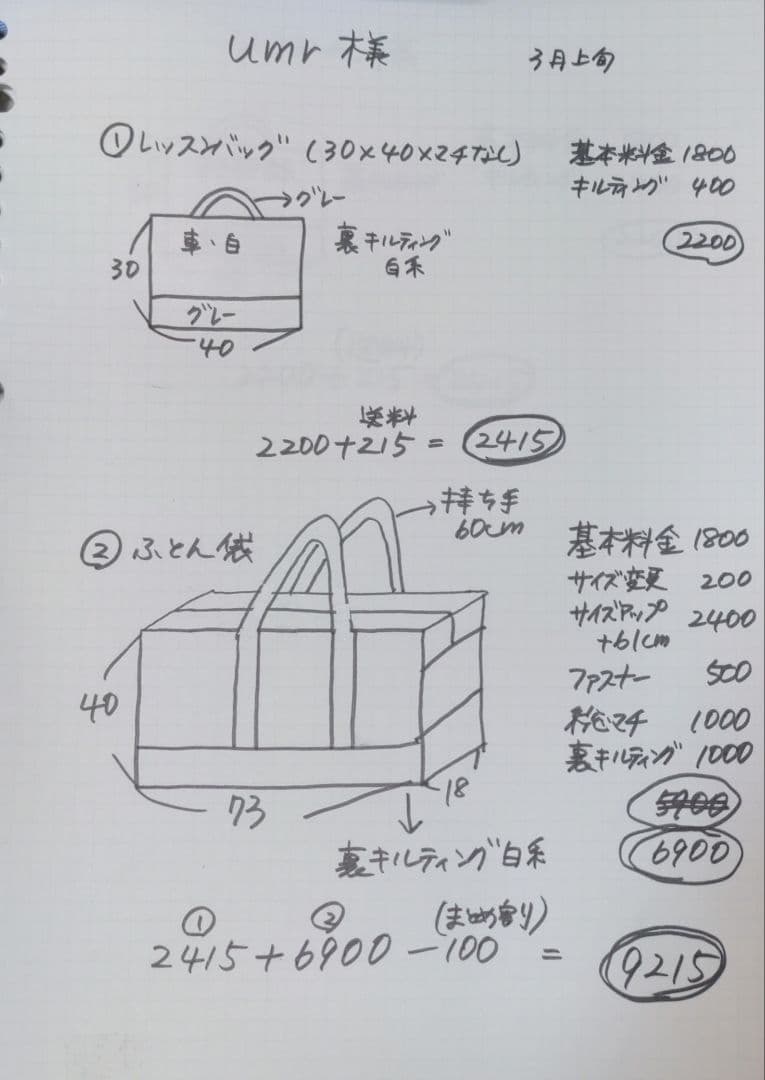 umr 様
3月上旬
①レッスンバッグ (30×40×マチなし)
基本料金 1800
キルティング 400
2200
グレー
車・白
裏キルティング
白系
30
グレー
40
送料
2200+215 = 2415
②ふとん袋
持ち手
60cm
基本料金 1800
サイズ変更 200
サイズアップ 2400
+61cm
ファスナー 500
マチ 1000
裏キルティング 1000
5900
6900
40
73
18
裏キルティング白系
① ② (まとめ割り)
2415+6900-100 = 9215